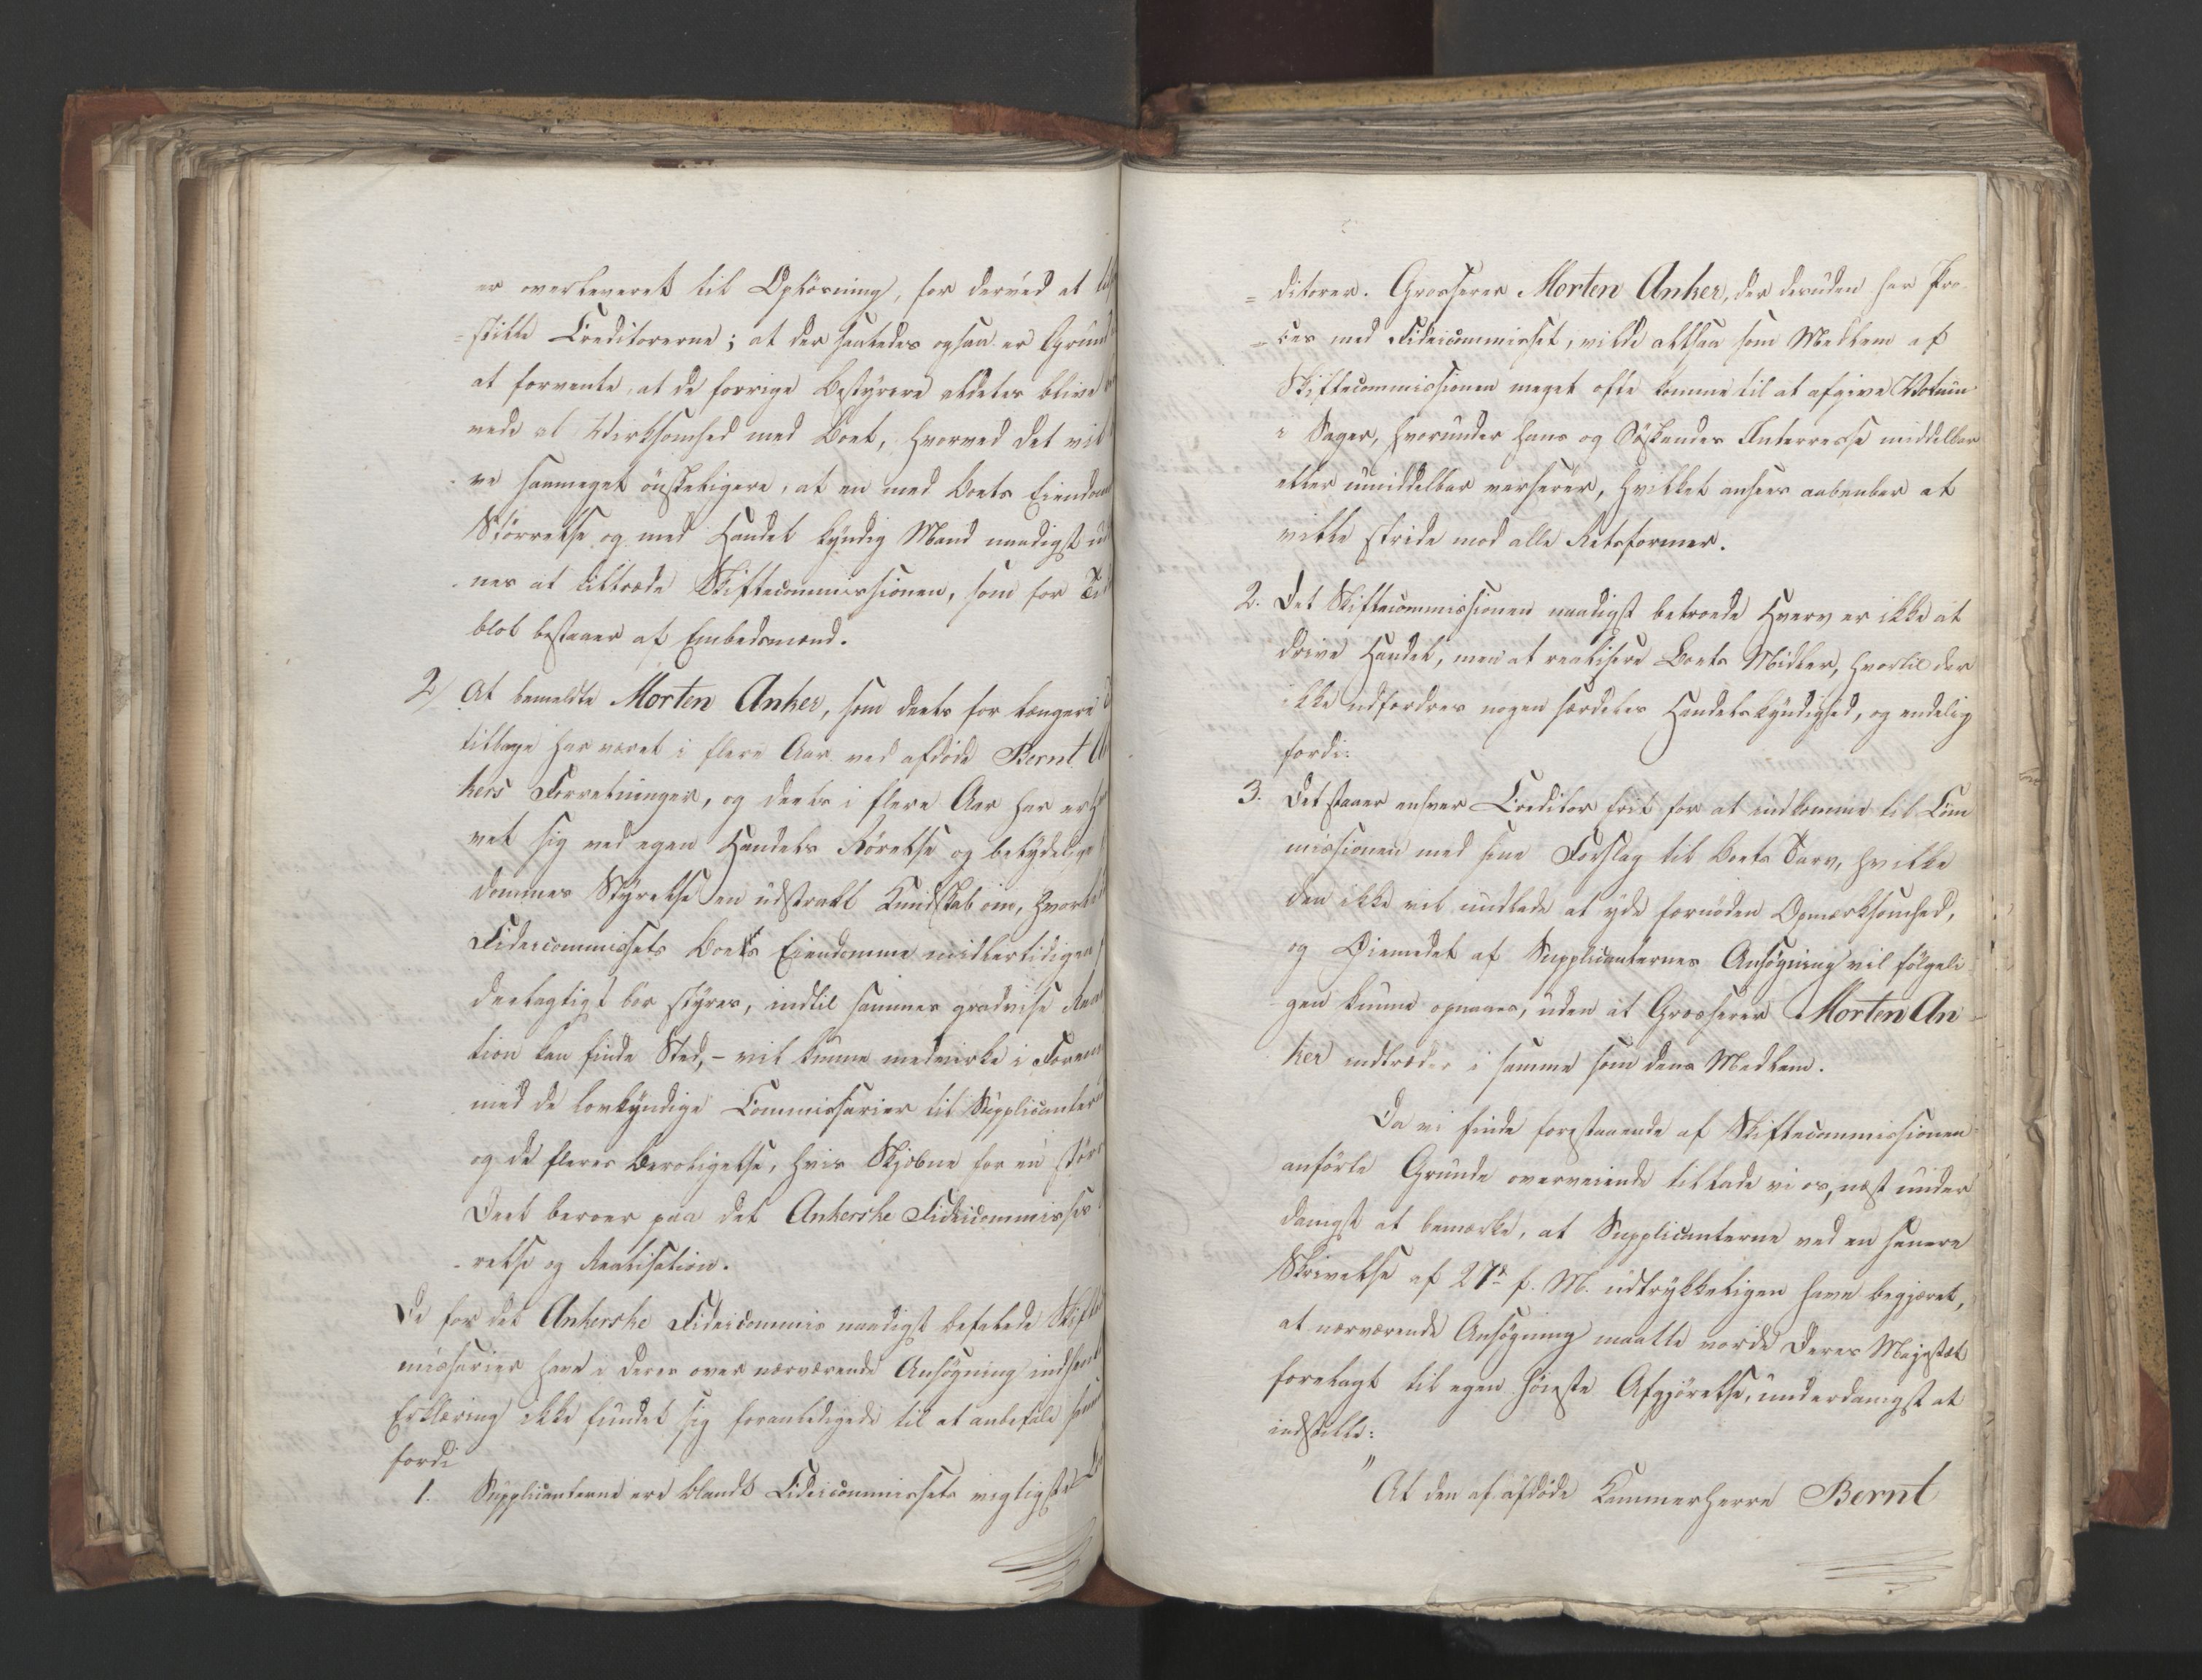 er overleveret til Opløsning, for derved at til
=stille Creditorerne; at der saaledes ogsaa er Grund
at forvente, at de forrige Bestyrere aldeles blive
nede al Virksomhed med Boet, hvorved det vil
ve saameget ønskeligere, at en med Boets Eiendom
Størrelse og med Handel kyndig Mand naadigst ud
nes at tiltræde Skiftecommissionen, som for Ti
blot bestaaer af Embedsmænd.
2/ At bemeldte Morten Anker, som deels for længere
tilbage har været i flere Aar ved afdøde Bernt An
kers Forretninger, og deels i flere Aar har erh
vet sig ved egen Handels Rørelse og betydelige
dommes Styrelse en udstrakt Kundskab om, hvorle
Fideicommissets Boets Eiendomme midlertidigen
deeltagtigst bør styres, indtil sammes gradvise Rea
tion kan finde Sted, - vil kunne medvirke i Foren
med de lovkyndige Commissarier til Supplicanter
og de fleres Beroligelse, hvis Skjebne for en stør
Deel beroer paa det Ankerske Fideicommisses
relse og Realisation.
De for det Ankerske Fideicommis naadigst befalede Skifte
missarier have i deres over nærværende Ansøgning indsen
Erklæring ikke fundet sig foranledigede til at anbefale sam
fordi
1. Supplicanterne ere blandt Fideicommissets vigtigste
=ditorer. Grosserer Morten Anker, der desuden har Pro
=ces med Fideicommisset, vilde altsaa som Medlem af
Skiftecommissionen meget ofte komme til at afgive Votum
i Sager, hvorunder hans og Søskendes Interresse middelbar
eller umiddelbar verserer, hvilket ansees aabenbar at
ville stride mod alle Retsformer.
2. Det Skiftecommissionen naadigst betroede Hverv er ikke at
drive Handel, men at realisere Boets Midler, hvortil der
ikke udfordres nogen særdeles Handelskyndighed, og endelig
fordi:
3. Det staaer enhver Creditor frit for at indkomme til Com
missionen med sine Forslag til Boets Tarv, hvilke
den ikke vil undlade at yde fornøden Opmærksomhed,
og Øiemedet af Supplicanternes Ansøgning vil følgeli
gen kunne opnaaes, uden at Grosserer Morten An=
ker indtræder i samme som dens Medlem.
Da vi finde forestaaende af Skiftecommissionen
anførte Grunde overveiende tillade vi os, næst under
danigst at bemærke, at Supplicanterne ved en senere
Skrivelse af 27de f. M. udtrykkeligen have begjæret,
at nærværende Ansøgning maatte vorde Deres Majestæt
forelagt til egen høieste Afgjørelse, underdanigst at
indstille:
"At den af afdøde Kammerherre Bernt